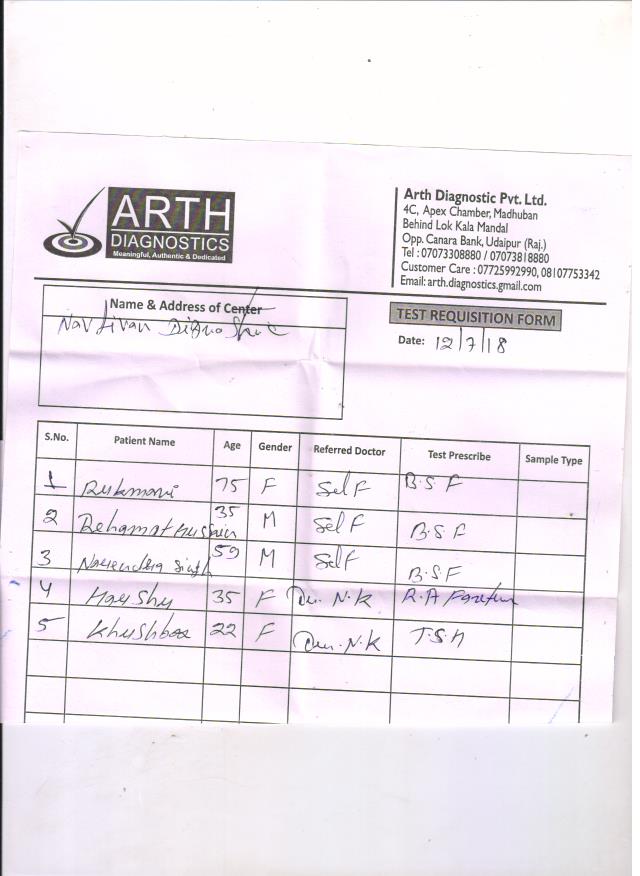 ARTH
DIAGNOSTICS
Meaningful, Authentic & Dedicated
Arth Diagnostic Pvt. Ltd.
4C, Apex Chamber, Madhuban
Behind Lok Kala Mandal
Opp. Canara Bank, Udaipur (Raj.)
Tel : 07073308880 / 07073818880
Customer Care : 07725992990, 08107753342
Email: arth.diagnostics.gmail.com
Name & Address of Center
TEST REQUISITION FORM
Date: 12/7/18
S.No. Patient Name Age Gender Referred Doctor Test Prescribe Sample Type
1 Rukmani 75 F Self B.S.F
2 Rehamat Hussain 35 M Self B.S.F
3 Narendra Singh 59 M Self B.S.F
4 35 F N.K R.A
5 Khushboo 22 F N.K T.S.H